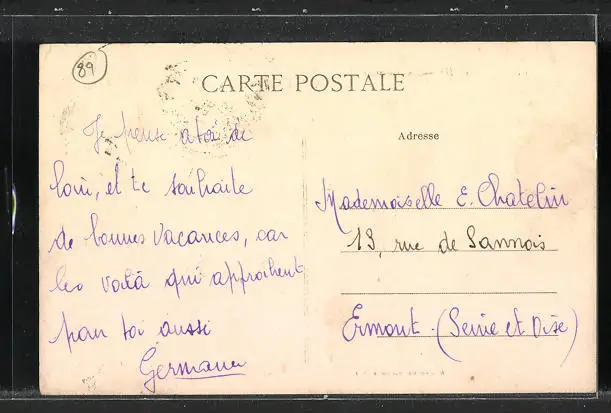 89
CARTE POSTALE
Je pense à toi de
loin, et te souhaite
de bonnes vacances, car
les voilà qui approchent
pour toi aussi
Germaine
Adresse
Mademoiselle E. Chatelin
13, rue de Sannois
Ermont. (Seine et Oise)